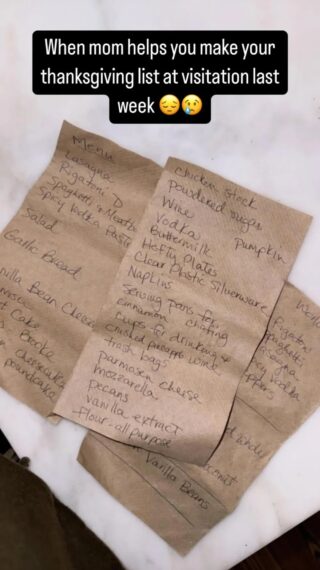 When mom helps you make your
thanksgiving list at visitation last
week 😔😢
Menu
Lasagna
Rigatoni D
Spaghetti & Meatba
Spicy Vodka Pasta
Salad
Garlic Bread
nilla Bean Cheese
Cake
Brocke
cheesecake
poundcake
chicken stock
powdered sugar
Wine
Vodka
Buttermilk
pumpkin
Hefty plates
Clear Plastic Silverware
Napkins
Serving pans foil
cinnamon chafing
Cups for drinking &
crushed pineapple wine
trash bags
parmesan cheese
mozzarella
pecans
vanilla extract
Flour-all purpose
Rigatoni
vodka
ppers
Vanilla Beans